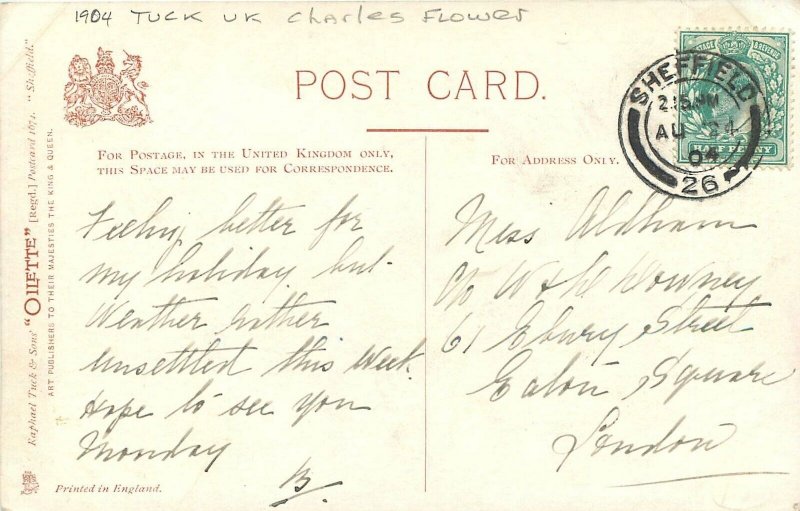 1904 TUCK UK Charles FLOWER
POST CARD.
FOR POSTAGE, IN THE UNITED KINGDOM ONLY,
THIS SPACE MAY BE USED FOR CORRESPONDENCE.
FOR ADDRESS ONLY.
Raphael Tuck & Sons' "OILETTE" [Regd.] Postcard 1671. "Sheffield."
ART PUBLISHERS TO THEIR MAJESTIES THE KING & QUEEN.
POSTAGE & REVENUE
HALF PENNY
SHEFFIELD
2.15 PM
AU 24
04
26
Feeling better for
my holiday, but
Weather rather
unsettled this Week.
Hope to see you
Monday
B.
Miss Aldham
c/o W & D Downey
61 Ebury Street
Eaton Square
London
Printed in England.